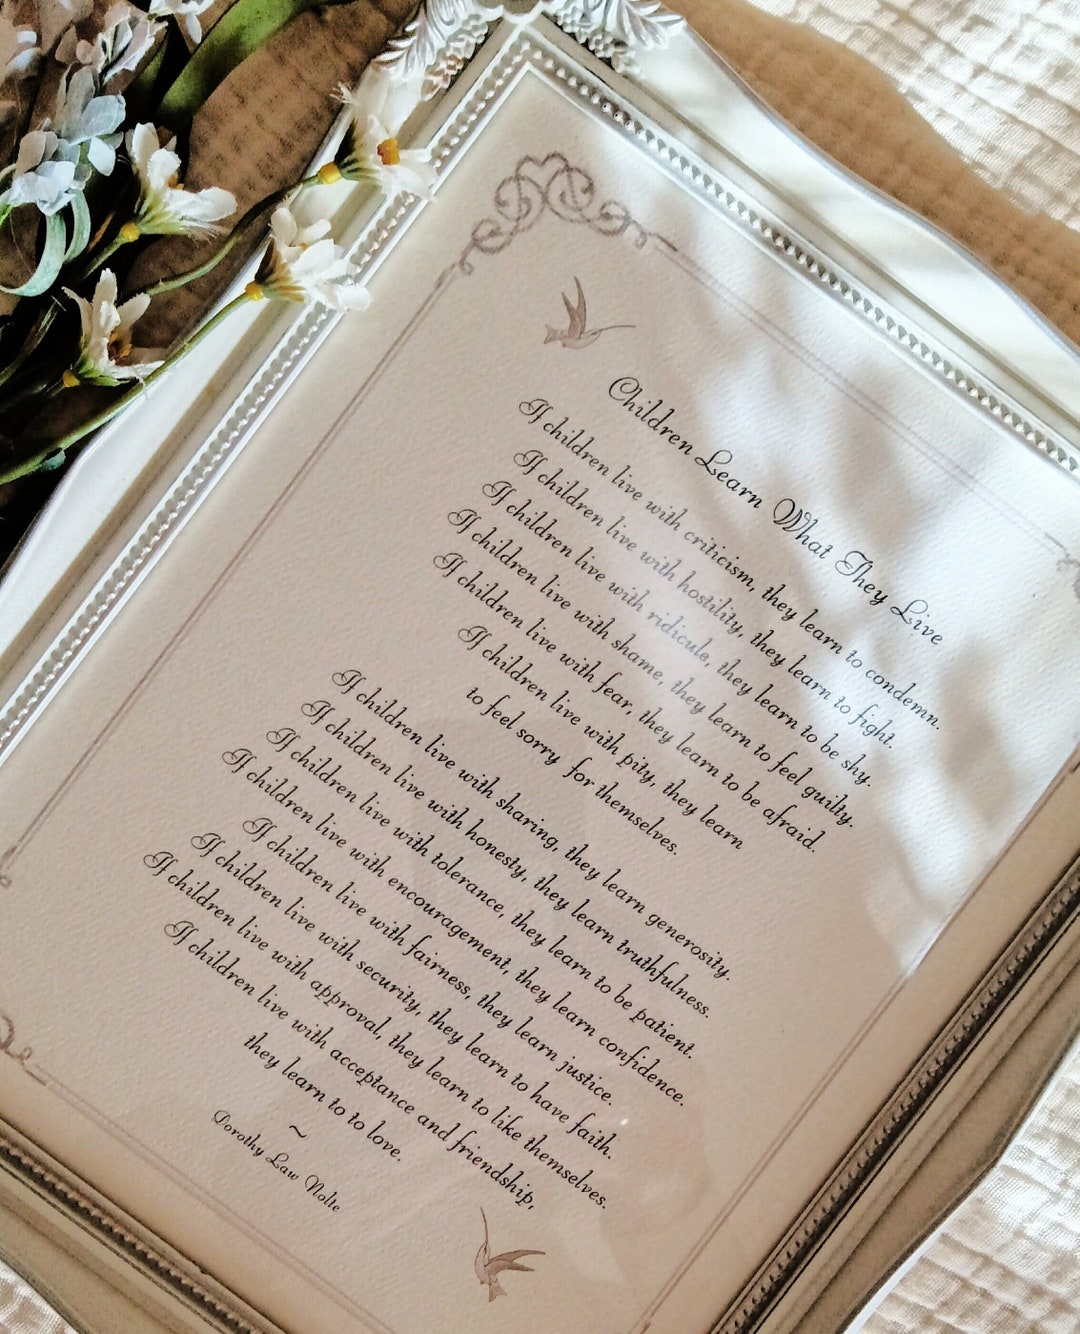 Children Learn What They Live
If children live with criticism, they learn to condemn.
If children live with hostility, they learn to fight.
If children live with ridicule, they learn to be shy.
If children live with shame, they learn to feel guilty.
If children live with fear, they learn to be afraid.
If children live with pity, they learn
to feel sorry for themselves.
If children live with sharing, they learn generosity.
If children live with honesty, they learn truthfulness.
If children live with tolerance, they learn to be patient.
If children live with encouragement, they learn confidence.
If children live with fairness, they learn justice.
If children live with security, they learn to have faith.
If children live with approval, they learn to like themselves.
If children live with acceptance and friendship,
they learn to to love.
~
Dorothy Law Nolte